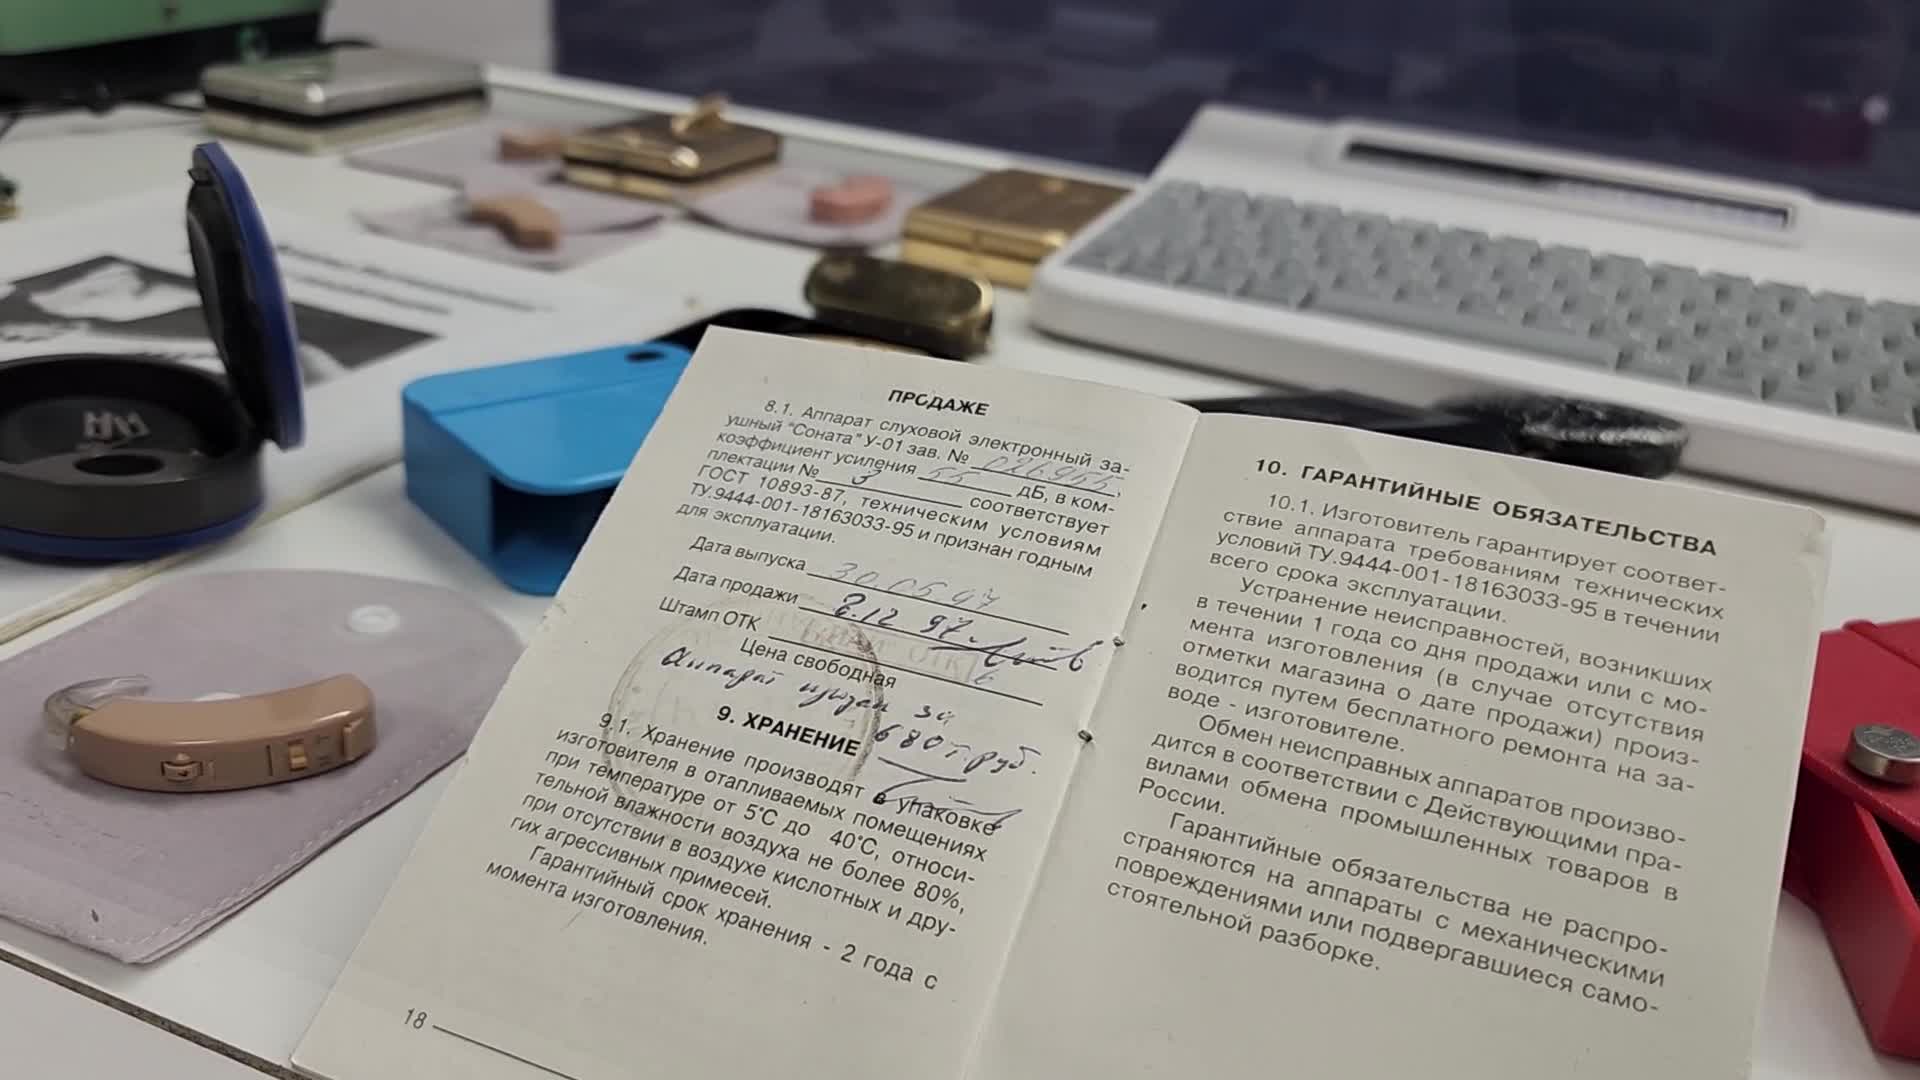 ПРОДАЖЕ
8.1. Аппарат слуховой электронный за-
ушный "Соната" У-01 зав. № 026955,
коэффициент усиления 55 дБ, в ком-
плектации № 3 соответствует
ГОСТ 10893-87, техническим условиям
ТУ.9444-001-18163033-95 и признан годным
для эксплуатации.
Дата выпуска 30.05.97
Дата продажи 2.12 97
Штамп ОТК
Цена свободная
Аппарат продан за
680 т руб.
9. ХРАНЕНИЕ
9.1. Хранение производят в упаковке
изготовителя в отапливаемых помещениях
при температуре от 5°С до 40°С, относи-
тельной влажности воздуха не более 80%,
при отсутствии в воздухе кислотных и дру-
гих агрессивных примесей.
Гарантийный срок хранения - 2 года с
момента изготовления.
18
10. ГАРАНТИЙНЫЕ ОБЯЗАТЕЛЬСТВА
10.1. Изготовитель гарантирует соответ-
ствие аппарата требованиям технических
условий ТУ.9444-001-18163033-95 в течении
всего срока эксплуатации.
Устранение неисправностей, возникших
в течении 1 года со дня продажи или с мо-
мента изготовления (в случае отсутствия
отметки магазина о дате продажи) произ-
водится путем бесплатного ремонта на за-
воде - изготовителе.
Обмен неисправных аппаратов произво-
дится в соответствии с Действующими пра-
вилами обмена промышленных товаров в
России.
Гарантийные обязательства не распро-
страняются на аппараты с механическими
повреждениями или подвергавшиеся само-
стоятельной разборке.